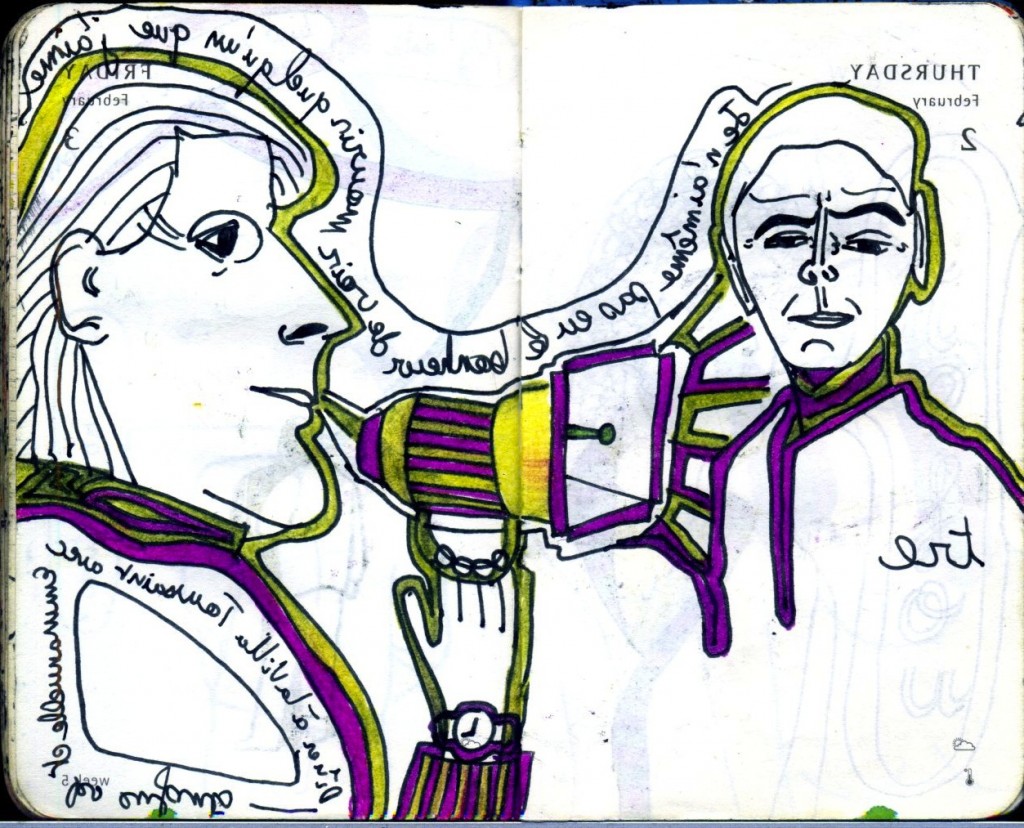 THURSDAY
February
2
FRIDAY
February
3
Je n'ai même pas eu le bonheur de voir mourir quelqu'un que j'aime
tre
Diner à la Villa Toussaint avec
Emmanuelle et
week 5